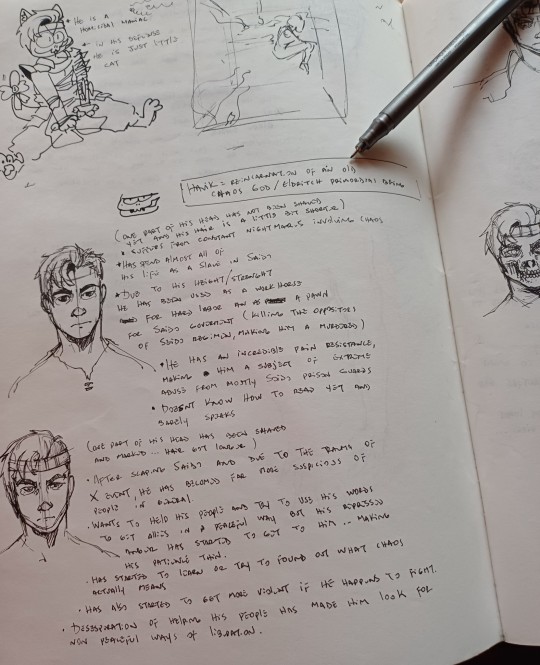 • HE IS A
HOMICIDAL MANIAC
• IN HIS DEFENSE
HE IS JUST LITTLE
CAT
HANK = REINCARNATION OF AN OLD
CHAOS GOD / ELDRITCH PRIMORDIAL BEING
(ONE PART OF HIS HEAD HAS NOT BEEN SHAVED
YET AND HIS HAIR IS A LITTLE BIT SHORTER)
• SUFFERS FROM CONSTANT NIGHTMARES INVOLVING CHAOS
• HAS SPEND ALMOST ALL OF
HIS LIFE AS A SLAVE IN SAIDO
• DUE TO HIS HEIGHT/STRENGHT
HE HAS BEEN USED AS A WORK HORSE
FOR HARD LABOR AN AS A PAWN
FOR SAIDO GOVERMENT (KILLING THE OPPOSITORS
OF SAIDO REGIMEN, MAKING HIM A MURDERER)
• HE HAS AN INCREDIBLE PAIN RESISTANCE,
MAKING HIM A SUBJECT OF EXTREME
ABUSE FROM MOSTLY SAIDO PRISON GUARDS
• DOESNT KNOW HOW TO READ YET AND
BARELY SPEAKS
(ONE PART OF HIS HEAD HAS BEEN SHAVED
AND MARKED... HAIR GOT LONGER)
• AFTER SCAPING SAIDO AND DUE TO THE TRAUMA OF
X EVENT, HE HAS BECOMED FAR MORE SUSPICIOUS OF
PEOPLE IN GENERAL.
• WANTS TO HELP HIS PEOPLE AND TRY TO USE HIS WORDS
TO GET ALLIES IN A PEACEFUL WAY BUT HIS REPRESSED
ANGER HAS STARTED TO GET TO HIM... MAKING
HIS PATIENCE THIN.
• HAS STARTED TO LEARN OR TRY TO FOUND OUT WHAT CHAOS
ACTUALLY MEANS
• HAS ALSO STARTED TO GET MORE VIOLENT IF HE HAPPENS TO FIGHT.
• DESESPERATION OF HELPING HIS PEOPLE HAS MADE HIM LOOK FOR
NON PEACEFUL WAYS OF LIBERATION.